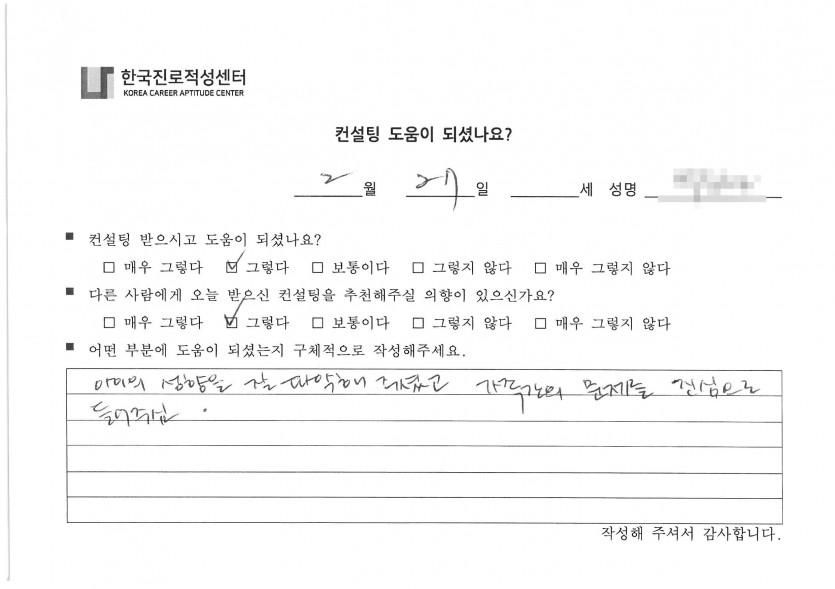 한국진로적성센터
KOREA CAREER APTITUDE CENTER
컨설팅 도움이 되셨나요?
2 월 27 일 세 성명
■ 컨설팅 받으시고 도움이 되셨나요?
□ 매우 그렇다 ☑ 그렇다 □ 보통이다 □ 그렇지 않다 □ 매우 그렇지 않다
■ 다른 사람에게 오늘 받으신 컨설팅을 추천해주실 의향이 있으신가요?
□ 매우 그렇다 ☑ 그렇다 □ 보통이다 □ 그렇지 않다 □ 매우 그렇지 않다
■ 어떤 부분에 도움이 되셨는지 구체적으로 작성해주세요.
아이의 성향을 잘 파악해 주셨고 가족간의 문제를 진심으로
들어주심.
작성해 주셔서 감사합니다.